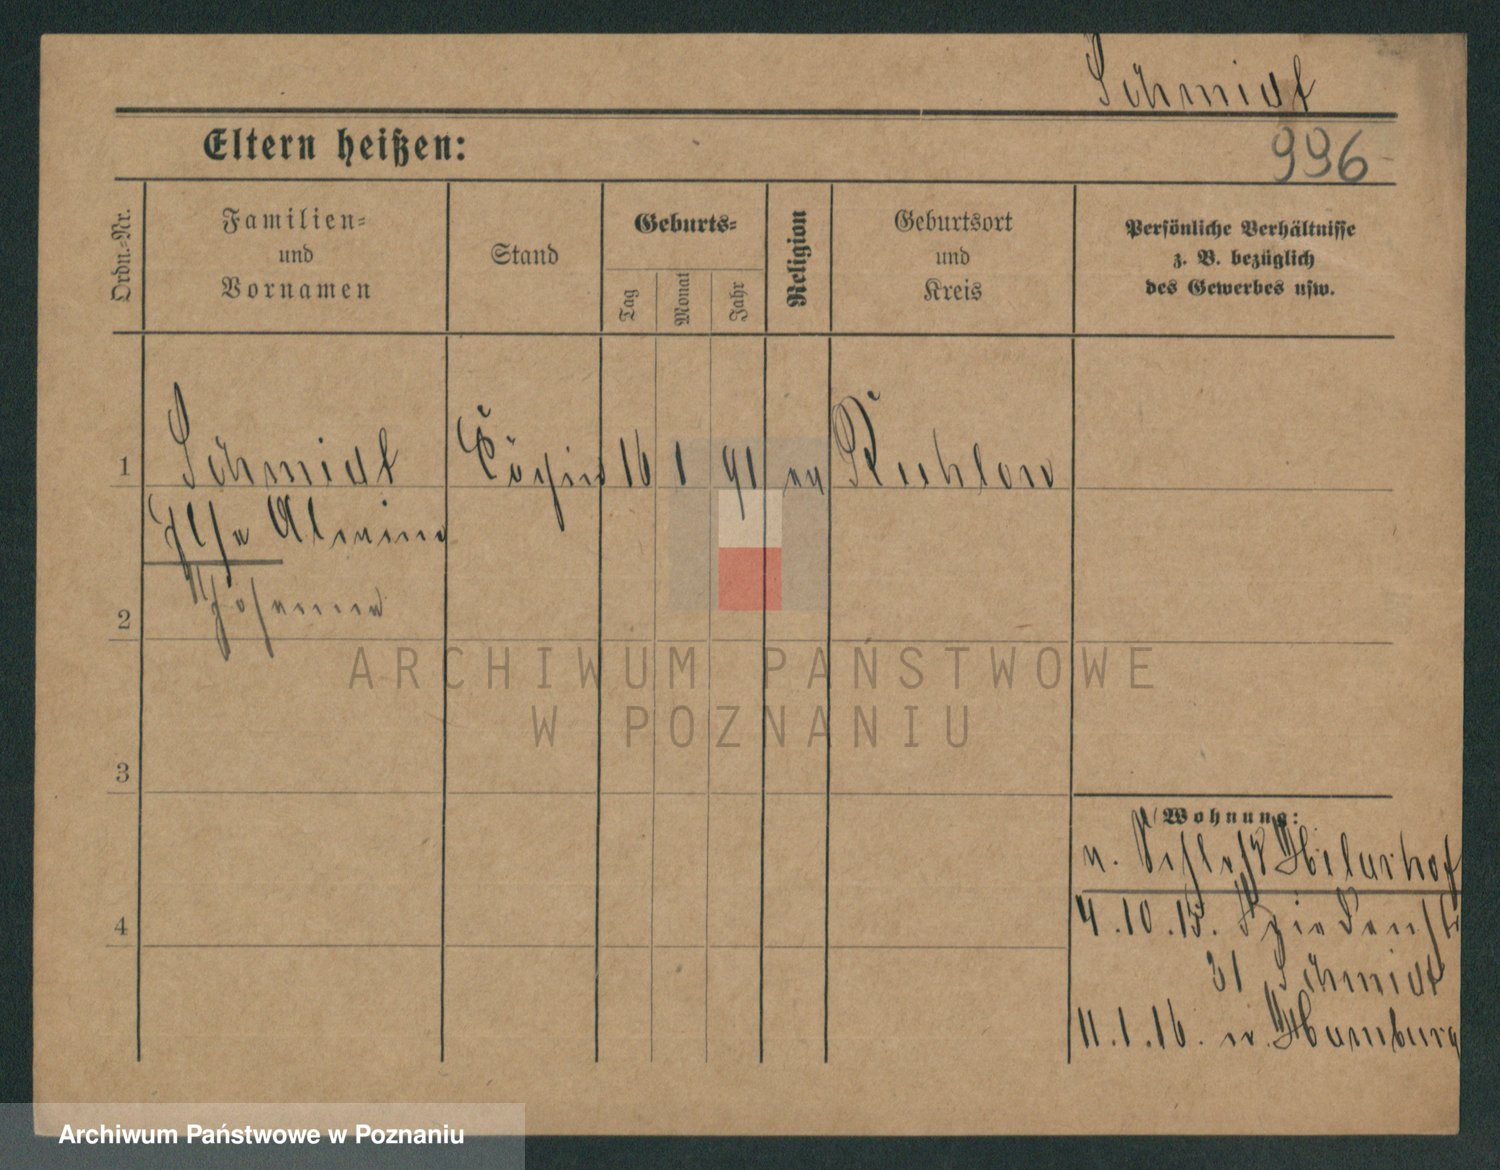 Schmidt
Eltern heißen:
996
Ordn.-Nr.
Familien-
und
Vornamen
Stand
Geburts-
Tag
Monat
Jahr
Religion
Geburtsort
und
Kreis
Persönliche Verhältnisse
z. B. bezüglich
des Gewerbes usw.
1
Schmidt
16
1
91
ev
Else
2
3
Wohnung:
n. Schloß
4
4.10.15.
31 Schmidt
11.1.16. n. Hamburg
ARCHIWUM PAŃSTWOWE
W POZNANIU
Archiwum Państwowe w Poznaniu